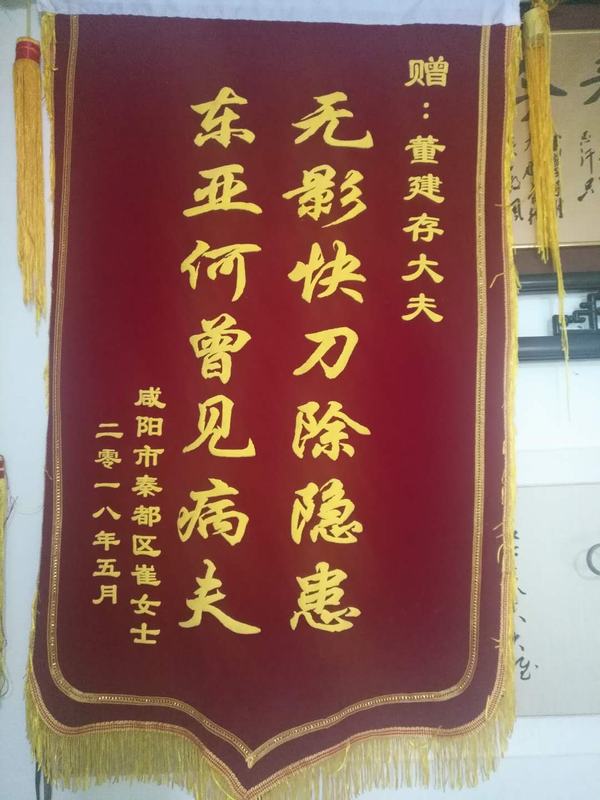 赠：董建存大夫
无影快刀除隐患
东亚何曾见病夫
咸阳市秦都区崔女士
二零一八年五月